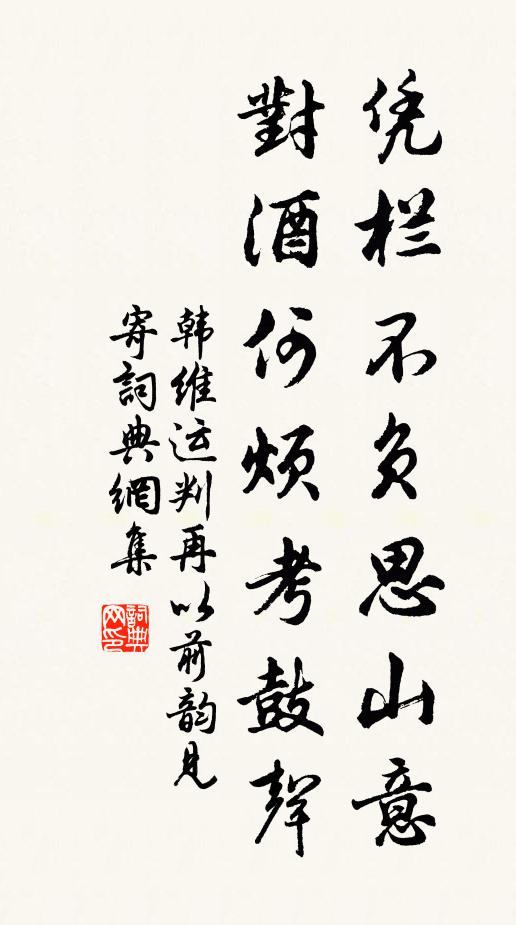 凭栏不负思山意
對酒何煩考鼓聲
韩維运判再以前韵見
寄詞典網集
詞典网印